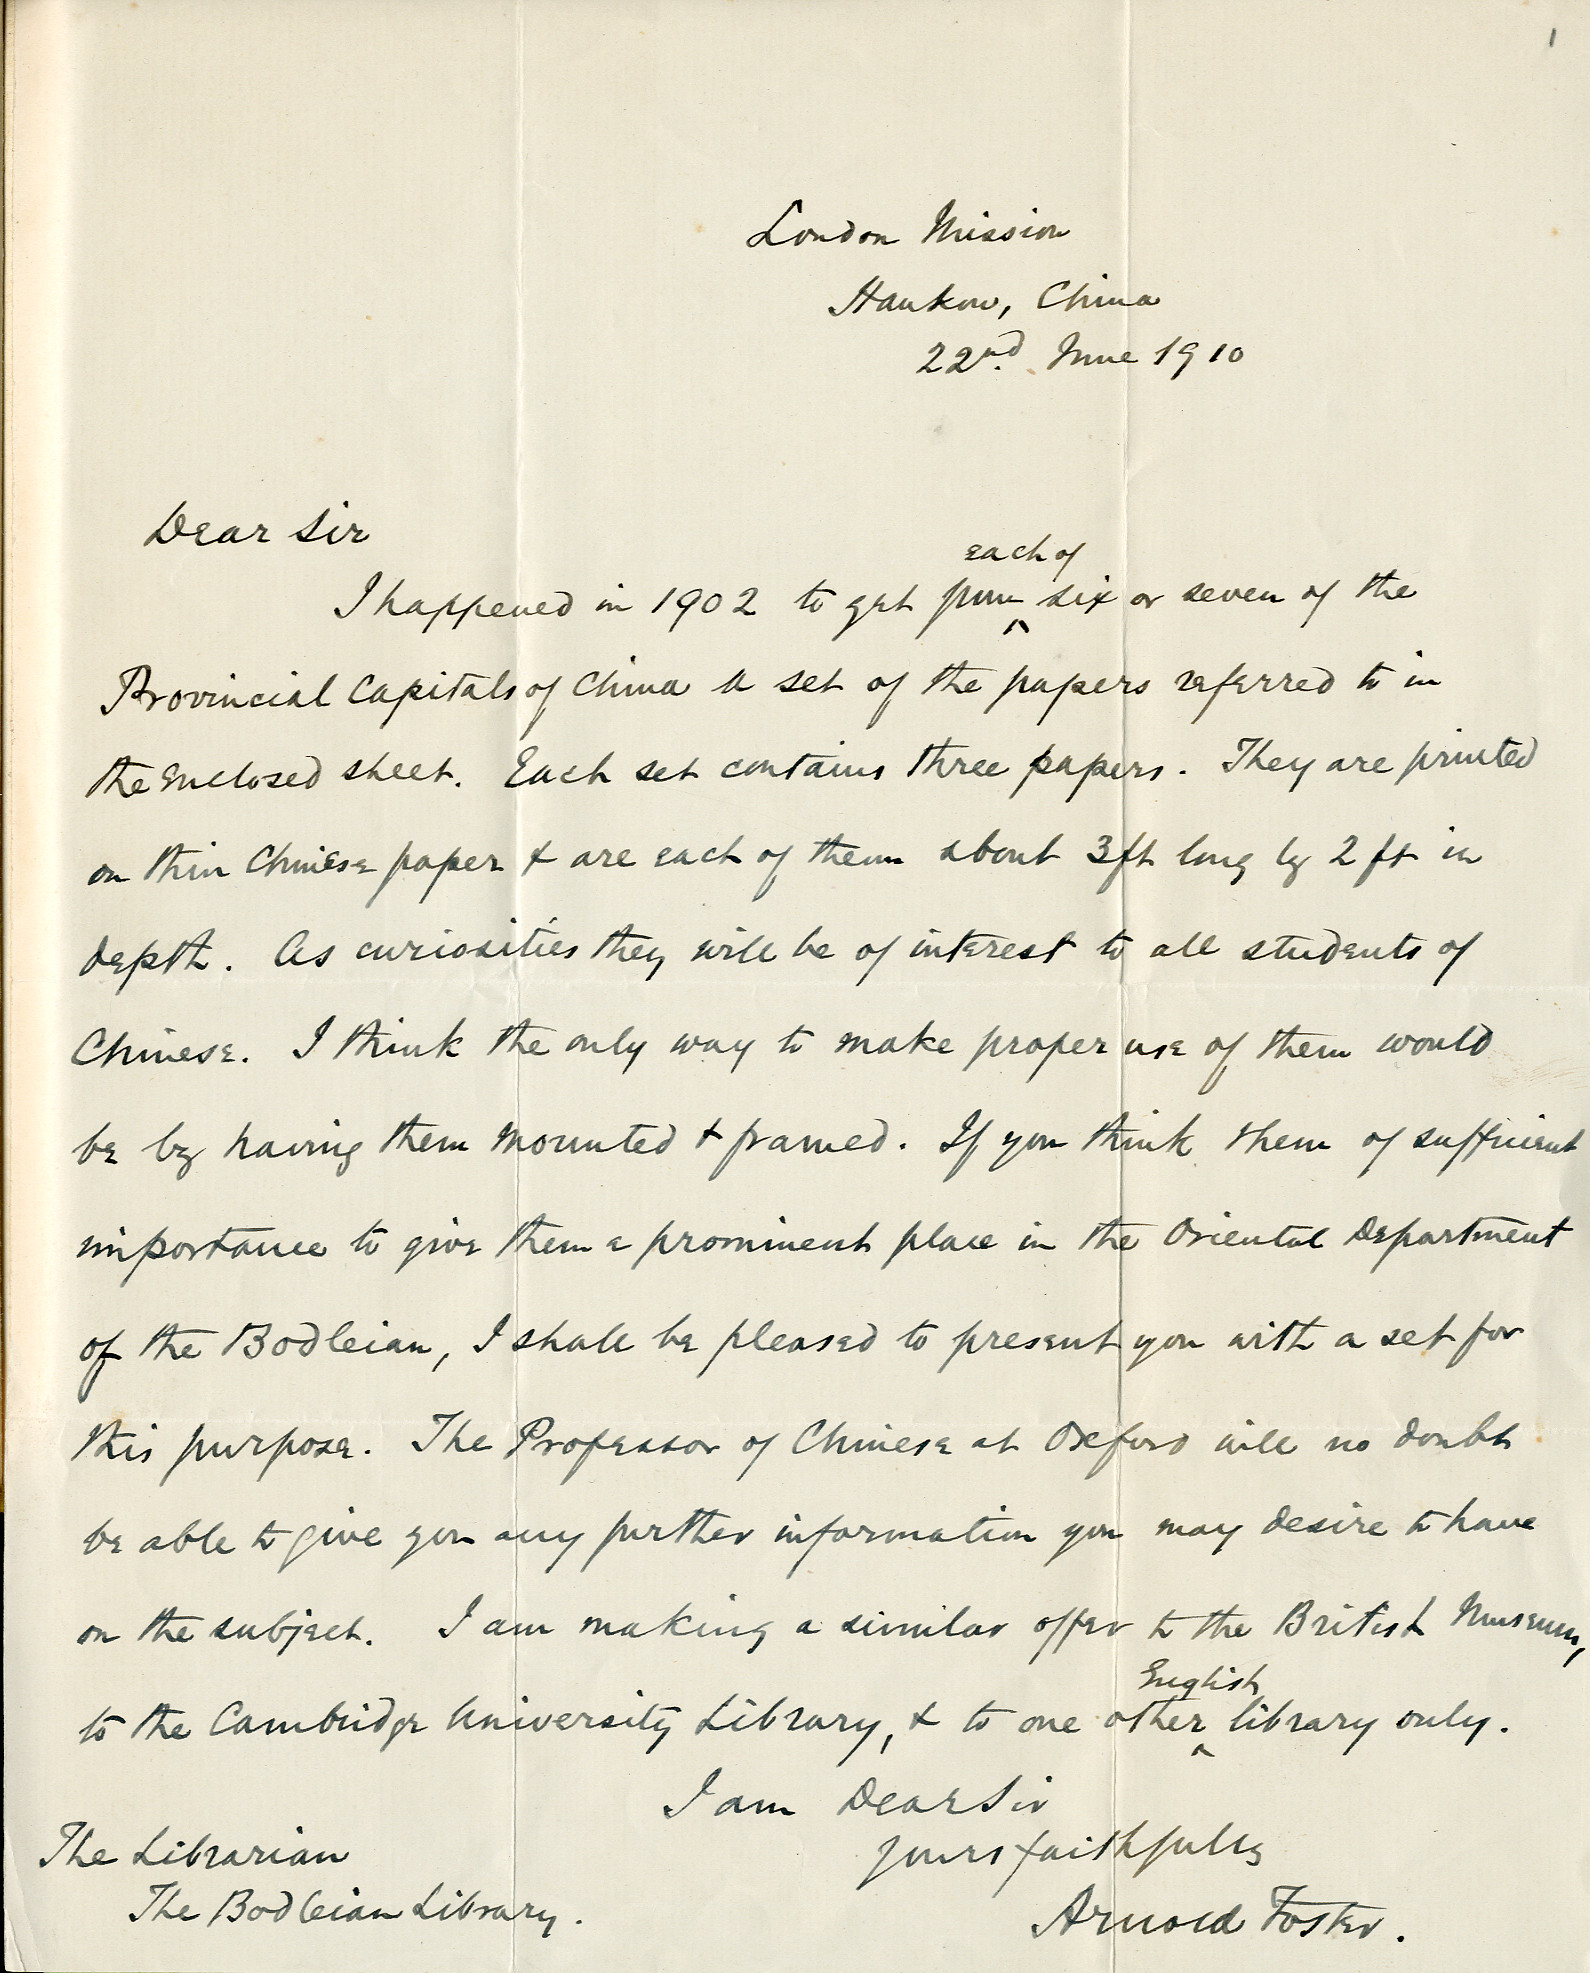 1
London Mission
Hankow, China
22nd. June 1910
Dear Sir
each of
I happened in 1902 to get from ^ six or seven of the
Provincial Capitals of China a set of the papers referred to in
the enclosed sheet. Each set contains three papers. They are printed
on thin Chinese paper & are each of them about 3 ft long by 2 ft in
depth. As curiosities they will be of interest to all students of
Chinese. I think the only way to make proper use of them would
be by having them mounted & framed. If you think them of sufficient
importance to give them a prominent place in the Oriental Department
of the Bodleian, I shall be pleased to present you with a set for
this purpose. The Professor of Chinese at Oxford will no doubt
be able to give you any further information you may desire to have
on the subject. I am making a similar offer to the British Museum,
English
to the Cambridge University Library, & to one other ^ library only.
I am Dear Sir
yours faithfully
Arnold Foster.
The Librarian
The Bodleian Library.